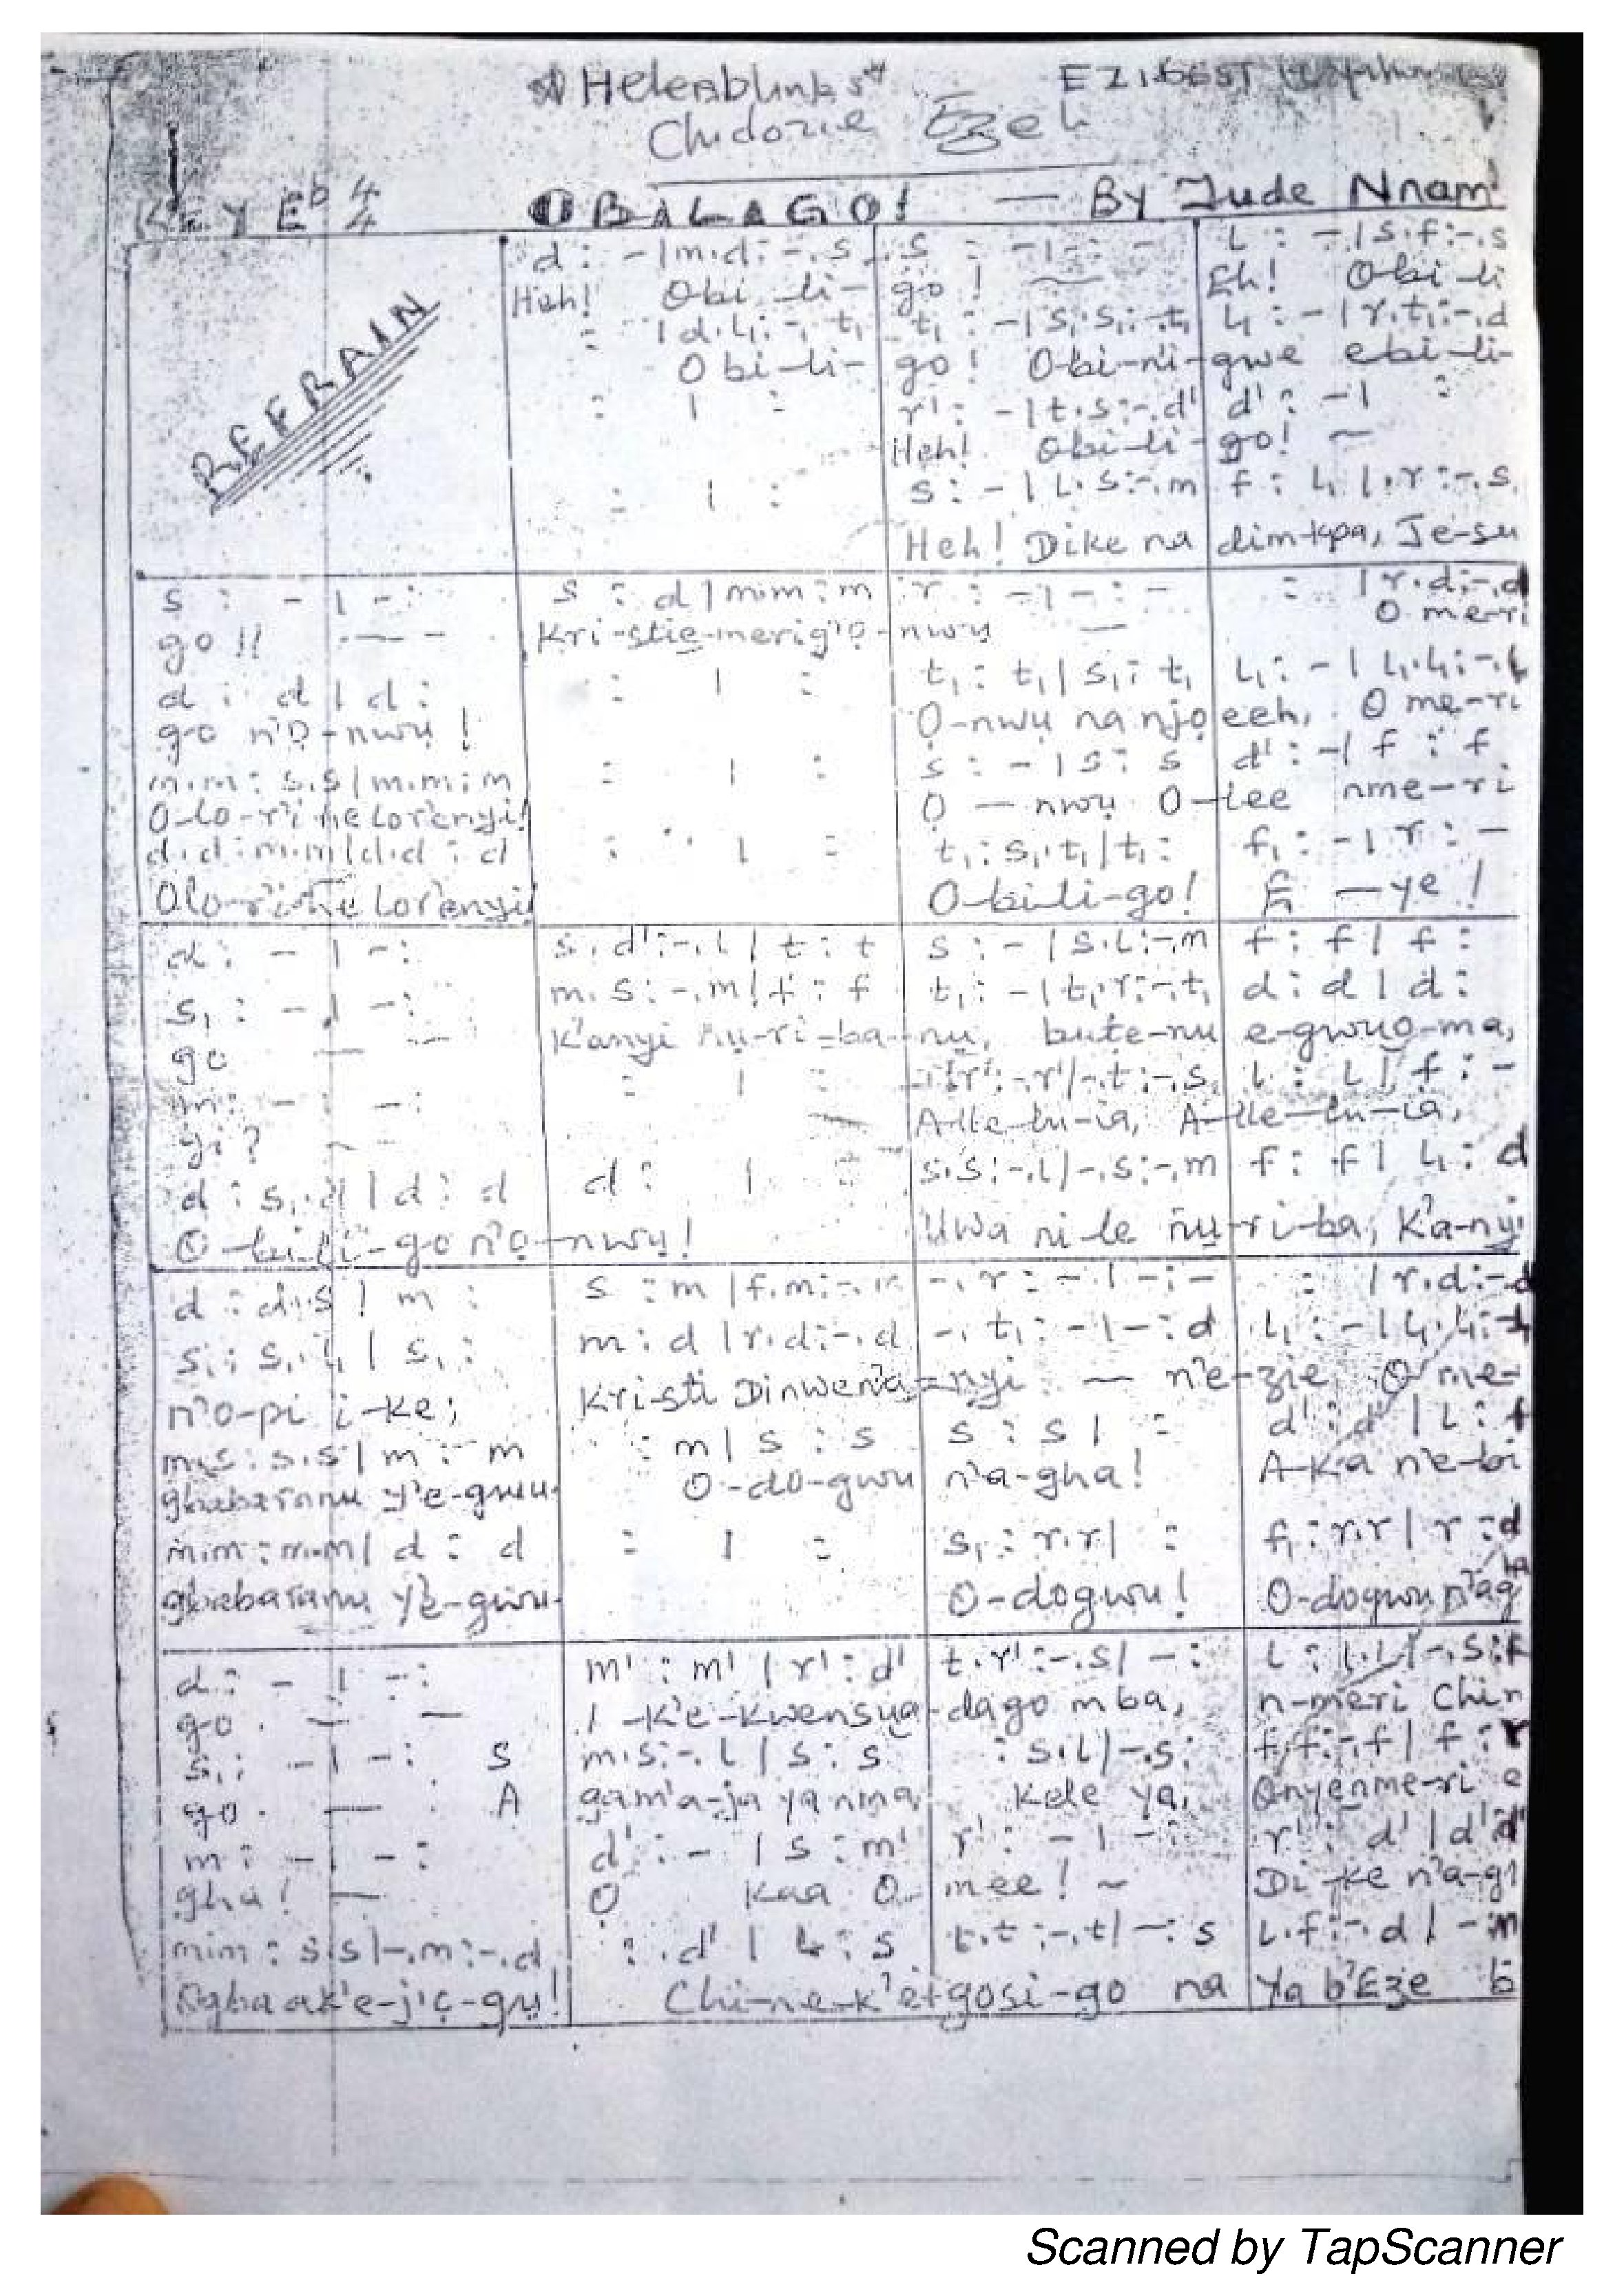 Helersblinks
EZIBEST
Chidozie Ezeh
KEY Eb 4/4 OBILIGO! — By Jude Nnam
REFRAIN
d : - | m.d : -.s s : - | - : - L : - | s.f : -.s
Heh! Obi-li- go! Eh! Obi-li
: | d.L₁ : -.t₁ t₁ : - | s₁.s₁ : -.t₁ L₁ : - | r.t₁ : -.d
Obi-li- go! Obi-ni-gwe ebi-li-
: | : r' : - | t.s : -.d' d' : - | :
Heh! Obi-li-go! ~
: | : s : - | L.s : -.m f : L₁ | .r : -.s
Heh! Dike na dim-kpa, Je-su
s : - | - : s : d | m.m : m r : - | - : - : | r.d : -.d
go!! — - Kri-stie-merig'ọ-nwụ — O me-ri
d : d | d : : | : t₁ : t₁ | s₁ : t₁ L₁ : - | L₁.L₁ : -.L
go n'ọ-nwụ! Ọ-nwụ na njọ eeh, O me-ri
m.m : s.s | m.m : m : | : s : - | s : s d' : - | f : f
O-lo-ri'ne Lor'enyi! Ọ — nwụ O-lee nme-ri
d.d : m.m | d.d : d : | : t₁ : s₁.t₁ | t₁ : f₁ : - | r : -
Olo-ri'ne Lor'enyi! O-bili-go! E — ye!
d : - | - : s.d' : -.L | t : t s : - | s.L : -.m f : f | f :
s₁ : - | - : m.s : -.m | f : f t₁ : - | t₁.r : -.t₁ d : d | d :
go — K'anyi ñụ-ri-ba-nụ, bute-nu e-gwuo-ma,
m : - | - : : | : r' : -.r' | -.t : -.s L : L | f : -
gi? ~ A-lle-lu-ia, A-lle-lu-ia,
d : s₁.d | d : d d : | : s.s : -.L | -.s : -.m f : f | L₁ : d
O-bi-li-go n'ọ-nwụ! Uwa ni-le ñụ-ri-ba, K'a-nyi
d : d.s | m : s : m | f.m : -.r -.r : - | - : - : | r.d : -.d
s₁ : s₁.L₁ | s₁ : m : d | r.d : -.d -.t₁ : - | - : d L₁ : - | L₁.L₁ : -.L
n'o-pi i-ke; Kri-sti Dinwen'a-nyi — n'e-zie O me-
m.s : s.s | m : m : m | s : s s : s | : d' : d' | L : f
gbabaranu y'e-gwu- O-do-gwu n'a-gha! A-ka n'e-bi
m.m : m.m | d : d : | : s₁ : r.r | : f₁ : r.r | r : d
gbabaranu y'e-gwu- O-dogwu! O-dogwu n'agha
d : - | - : m' : m' | r' : d' t.r' : -.s | - : L : L.L | -.s : f
go. — — I-k'e-kwensụa-dago mba, n-meri Chin
s₁ : - | - : s m.s : -.L | s : s : s.L | -.s : f.f : -.f | f : r
go. — A gam'a-ja ya nma Kele ya, Onyenme-ri e
m : - | - : d' : - | s : m' r' : - | - : r' : d' | d'.d'
gha! — O Kaa O mee! ~ Di-ke n'a-gh
m.m : s.s | -.m : -.d : .d' | L : s t.t : -.t | - : s L.f : -.d | - m
Ogbaak'e-j'ẹ-gụ! Chi-ne-k'e-gosi-go na Ya b'Eze b
Scanned by TapScanner